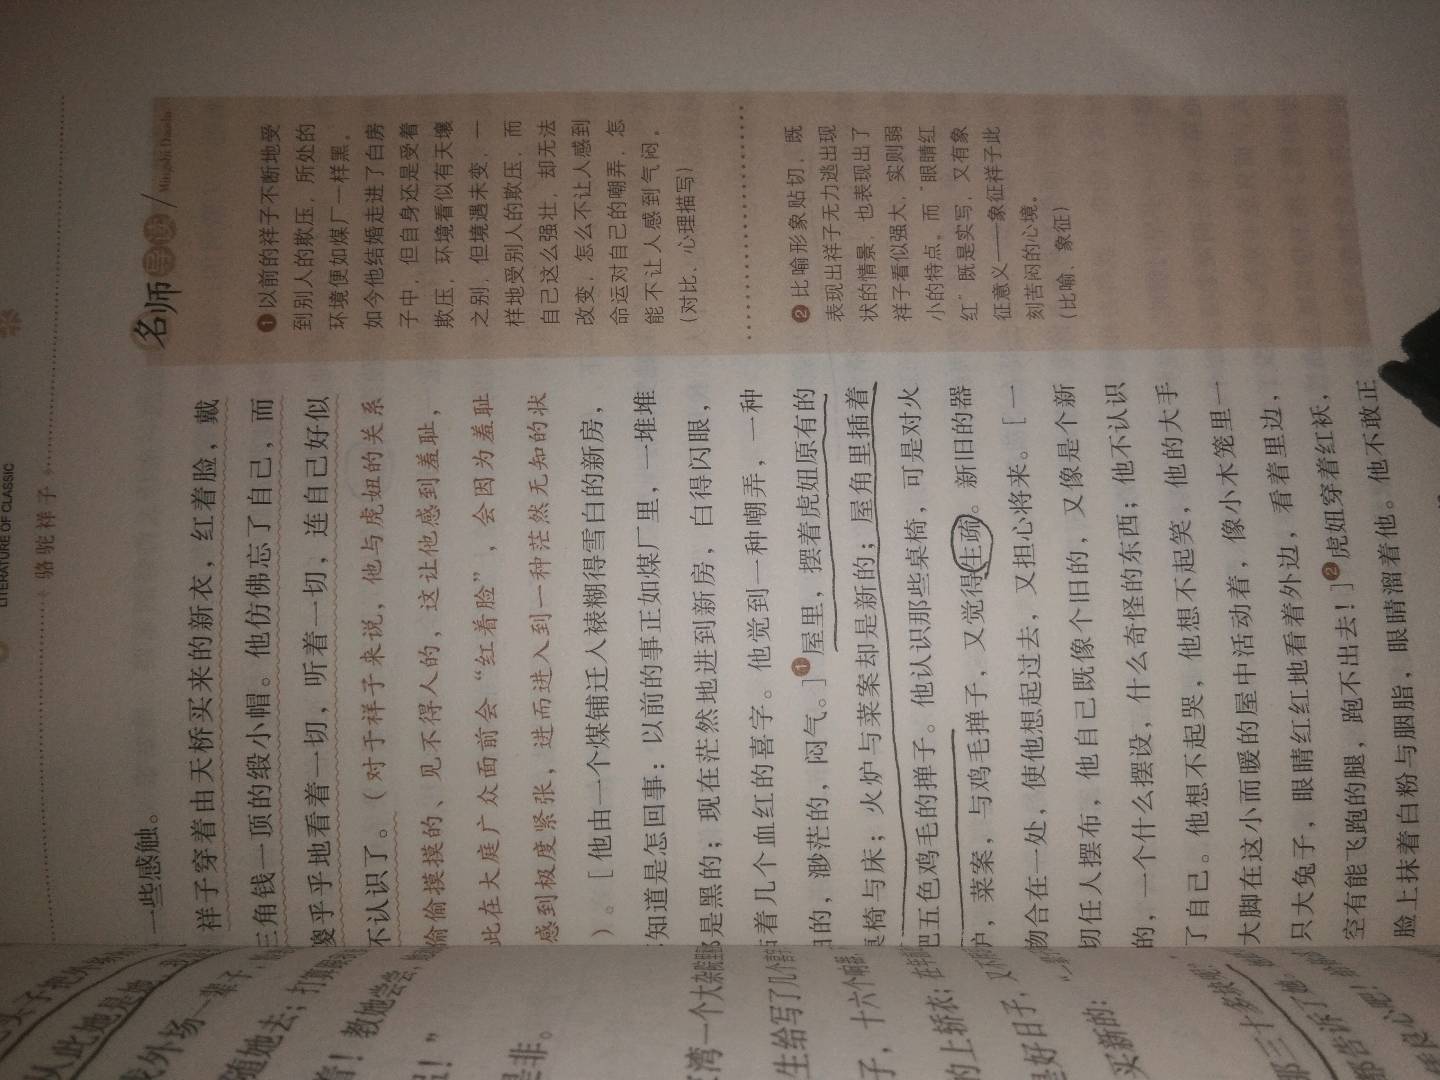 LITERATURE OF CLASSIC
骆驼祥子
一些感触。
祥子穿着由天桥买来的新衣，红着脸，戴
三角钱一顶的缎小帽。他仿佛忘了自己，而
傻乎乎地看着一切，听着一切，连自己好似
不认识了。（对于祥子来说，他与虎妞的关系
偷偷摸摸的、见不得人的，这让他感到羞耻，
此在大庭广众面前会“红着脸”，会因为羞耻
感到极度紧张，进而进入到一种茫然无知的状
）。［他由一个煤铺迁入裱糊得雪白的新房，
知道是怎回事：以前的事正如煤厂里，一堆堆
都是黑的；现在茫然地进到新房，白得闪眼，
着几个血红的喜字。他觉到一种嘲弄，一种
的，渺茫的，闷气。］❶屋里，摆着虎妞原有的
桌椅与床；火炉与菜案却是新的；屋角里插着
把五色鸡毛的掸子。他认识那些桌椅，可是对火
炉，菜案，与鸡毛掸子，又觉得生疏。新旧的器
物合在一处，使他想起过去，又担心将来。［一
切任人摆布，他自己既像个旧的，又像是个新
的，一个什么摆设，什么奇怪的东西；他不认识
了自己。他想不起哭，他想不起笑，他的大手
大脚在这小而暖的屋中活动着，像小木笼里一
只大兔子，眼睛红红地看着外边，看着里边，
空有能飞跑的腿，跑不出去！］❷虎妞穿着红袄，
脸上抹着白粉与胭脂，眼睛溜着他。他不敢正
名师导读
Mingshi Daodu
❶以前的祥子不断地受
到别人的欺压，所处的
环境便如煤厂一样黑，
如今他结婚走进了白房
子中，但自身还是受着
欺压，环境看似有天壤
之别，但境遇未变，一
样地受别人的欺压，而
自己这么强壮，却无法
改变，怎么不让人感到
命运对自己的嘲弄，怎
能不让人感到气闷。
（对比、心理描写）
❷比喻形象贴切，既
表现出祥子无力逃出现
状的情景，也表现出了
祥子看似强大，实则弱
小的特点。而“眼睛红
红”既是实写，又有象
征意义——象征祥子此
刻苦闷的心境。
（比喻、象征）
从此她是她
外场一辈子，
随她去；打
！教她尝尝，
！”
是非。
湾一个大杂院里
生给写了几个喜
子，十六个响器
的上轿衣；在
是好日子，又不
买新的：
那三十多块
都告诉了他